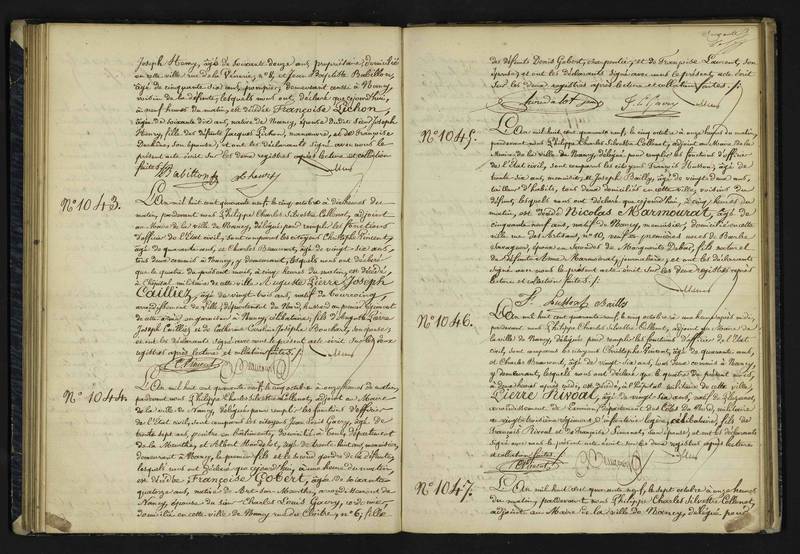 Joseph Henry, âgé de soixante douze ans, propriétaire, domicilié
en cette ville rue de la Vénerie, n° 8, et Jean Baptiste Babillon,
âgé de cinquante six ans, pompier, demeurant aussi à Nancy,
voisin de la défunte, lesquels nous ont déclaré que cejourd'hui,
à neuf heures du matin, est décédée Françoise Pichon,
âgée de soixante dix ans, native de Nancy, épouse du dit sieur Joseph
Henry, fille des défunts Jacques Pichon, manœuvre, et de Françoise
son épouse; et ont les déclarants signé avec nous le
présent acte écrit sur les deux registres après lecture et collation
faites.
Babillon J. henry
N° 1043.
L'An mil huit cent quarante neuf, le cinq octobre à dix heures du
matin, pardevant nous Philippe Charles Silvestre Collenot, adjoint
au Maire de la ville de Nancy, délégué pour remplir les fonctions
d'officier de l'État civil, sont comparus les citoyens Christophe Pincent,
âgé de quarante ans, et Charles Beaucourt, âgé de vingt-six ans,
tous deux commis à Nancy, y demeurant, lesquels nous ont déclaré
que le quatre du présent mois, à cinq heures du matin, est décédé,
à l'hôpital militaire de cette ville Auguste Pierre Joseph
Cailliez, âgé de vingt trois ans, natif de Tourcoing
arrondissement de Lille, département du Nord, hussard au premier Régiment
de cette arme en garnison à Nancy, célibataire; fils d'Auguste Pierre
Joseph Cailliez et de Catherine Caroline Josèphe Bouchart, son épouse;
et ont les déclarants signé avec nous le présent acte écrit sur les deux
registres après lecture et collation faites.
C. Pincent
N° 1044.
L'An mil huit cent quarante neuf, le cinq octobre à onze heures du matin,
pardevant nous Philippe Charles Silvestre Collenot, adjoint au Maire
de la ville de Nancy, délégué pour remplir les fonctions d'officier
de l'État civil, sont comparus les citoyens Jean Louis Gavry, âgé de
trente sept ans, peintre en bâtiments, domicilié à Toul, département
de la Meurthe, et âgé de trente huit ans, menuisier,
demeurant à Nancy, le premier fils et le second gendre de la défunte,
lesquels nous ont déclaré que cejourd'hui, à une heure du matin
est décédée Françoise Gobert, âgée de soixante
quatorze ans, native de arrondissement de
Nancy, épouse du sieur Charles Louis Gavry,
domicilié en cette ville de Nancy rue du Cloître, n° 6; fille
des défunts Denis Gobert, charpentier, et de Françoise Laurent, son
épouse; et ont les déclarants signé avec nous le présent acte écrit
sur les deux registres après lecture et collation faites.
Gavry
N° 1045.
L'An mil huit cent quarante neuf, le cinq octobre à onze heures du matin,
pardevant nous Philippe Charles Silvestre Collenot, adjoint au Maire de la
Mairie de la ville de Nancy, délégué pour remplir les fonctions d'officier
de l'État civil, sont comparus les citoyens François Husson, âgé de
trente-six ans, menuisier, et Joseph Bailly, âgé de vingt deux ans,
tailleur d'habits, tous deux domiciliés en cette ville, voisins du
défunt; lesquels nous ont déclaré que cejourd'hui, à cinq heures du
matin, est décédé Nicolas Marmourat, âgé de
cinquante neuf ans, natif de Nancy, menuisier, domicilié en cette
ville rue des Artisans, n° 62, veuf en premières noces de Barbe
époux en secondes de Marguerite Dubas, fils naturel
de défunte Anne Marmourat, journalière; et ont les déclarants
signé avec nous le présent acte écrit sur les deux registres après
lecture et collation faites.
F. husson Bailly
N° 1046.
L'An mil huit cent quarante neuf, le cinq octobre à
pardevant nous Philippe Charles Silvestre Collenot, adjoint au Maire de
la ville de Nancy, délégué pour remplir les fonctions d'officier de l'État
civil, sont comparus les citoyens Christophe Pincent, âgé de quarante ans,
et Charles Beaucourt, âgé de vingt-six ans, tous deux commis à Nancy,
y demeurant, lesquels nous ont déclaré que le quatre du présent mois,
à deux heures après midi, est décédé, à l'hôpital militaire de cette ville,
Pierre Rivoal, âgé de vingt-six ans, natif de
arrondissement de Lannion, département des Côtes du Nord, militaire
au vingt-troisième régiment d'infanterie légère, célibataire; fils de
François Rivoal et de Marguerite son épouse; et ont les déclarants
signé avec nous le présent acte écrit sur les deux registres après lecture
et collation faites.
C. Pincent
N° 1047.
L'An mil huit cent quarante neuf, le sept octobre à onze heures
du matin, pardevant nous Philippe Charles Silvestre Collenot,
adjoint au Maire de la ville de Nancy, délégué pour